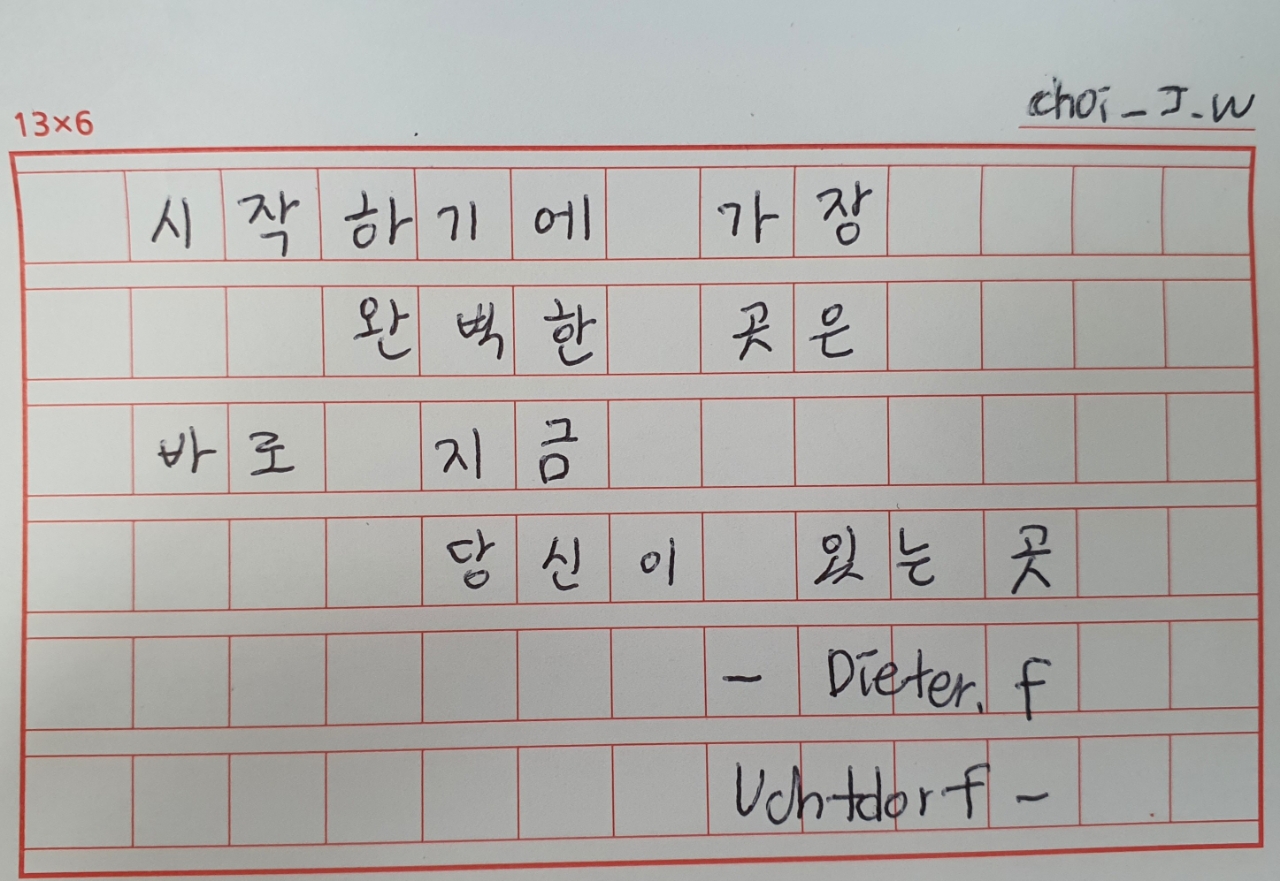 13×6
choi_J.W
시작하기에 가장
완벽한 곳은
바로 지금
당신이 있는 곳
- Dieter. f
Uchtdorf -